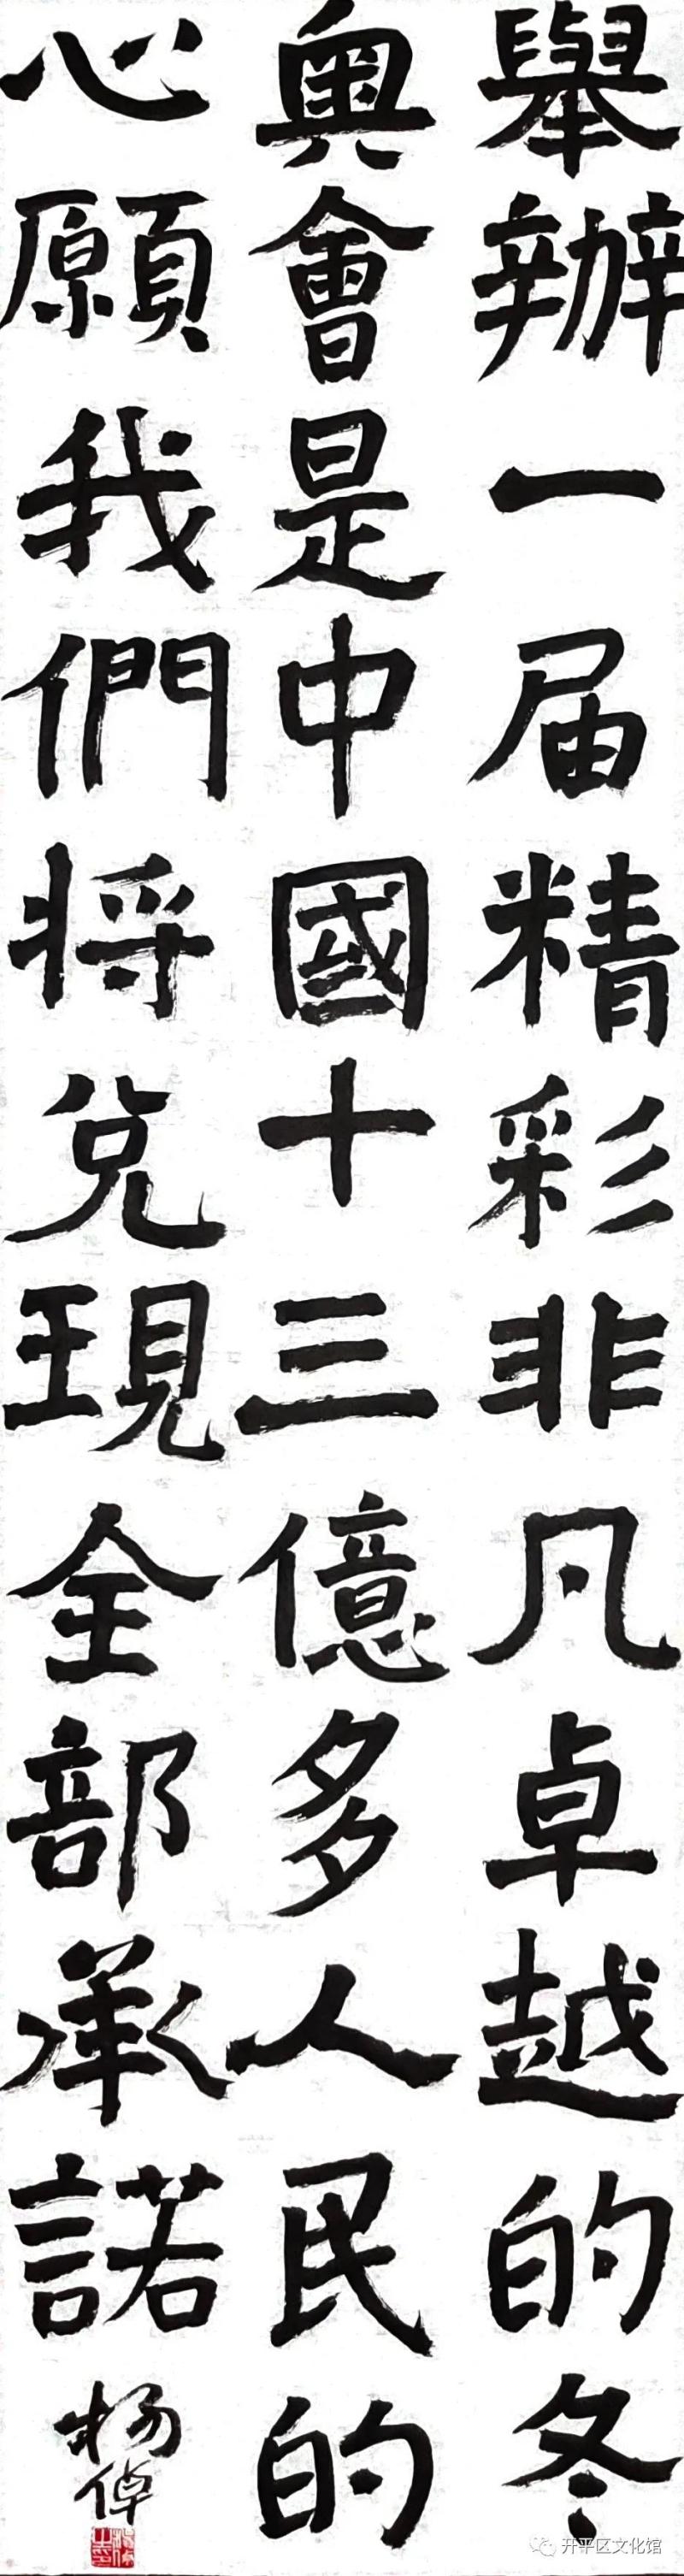 舉辦一届精彩非凡卓越的冬
奥會是中國十三億多人民的
心願我們将兑現全部承諾
杨倬
开平区文化馆